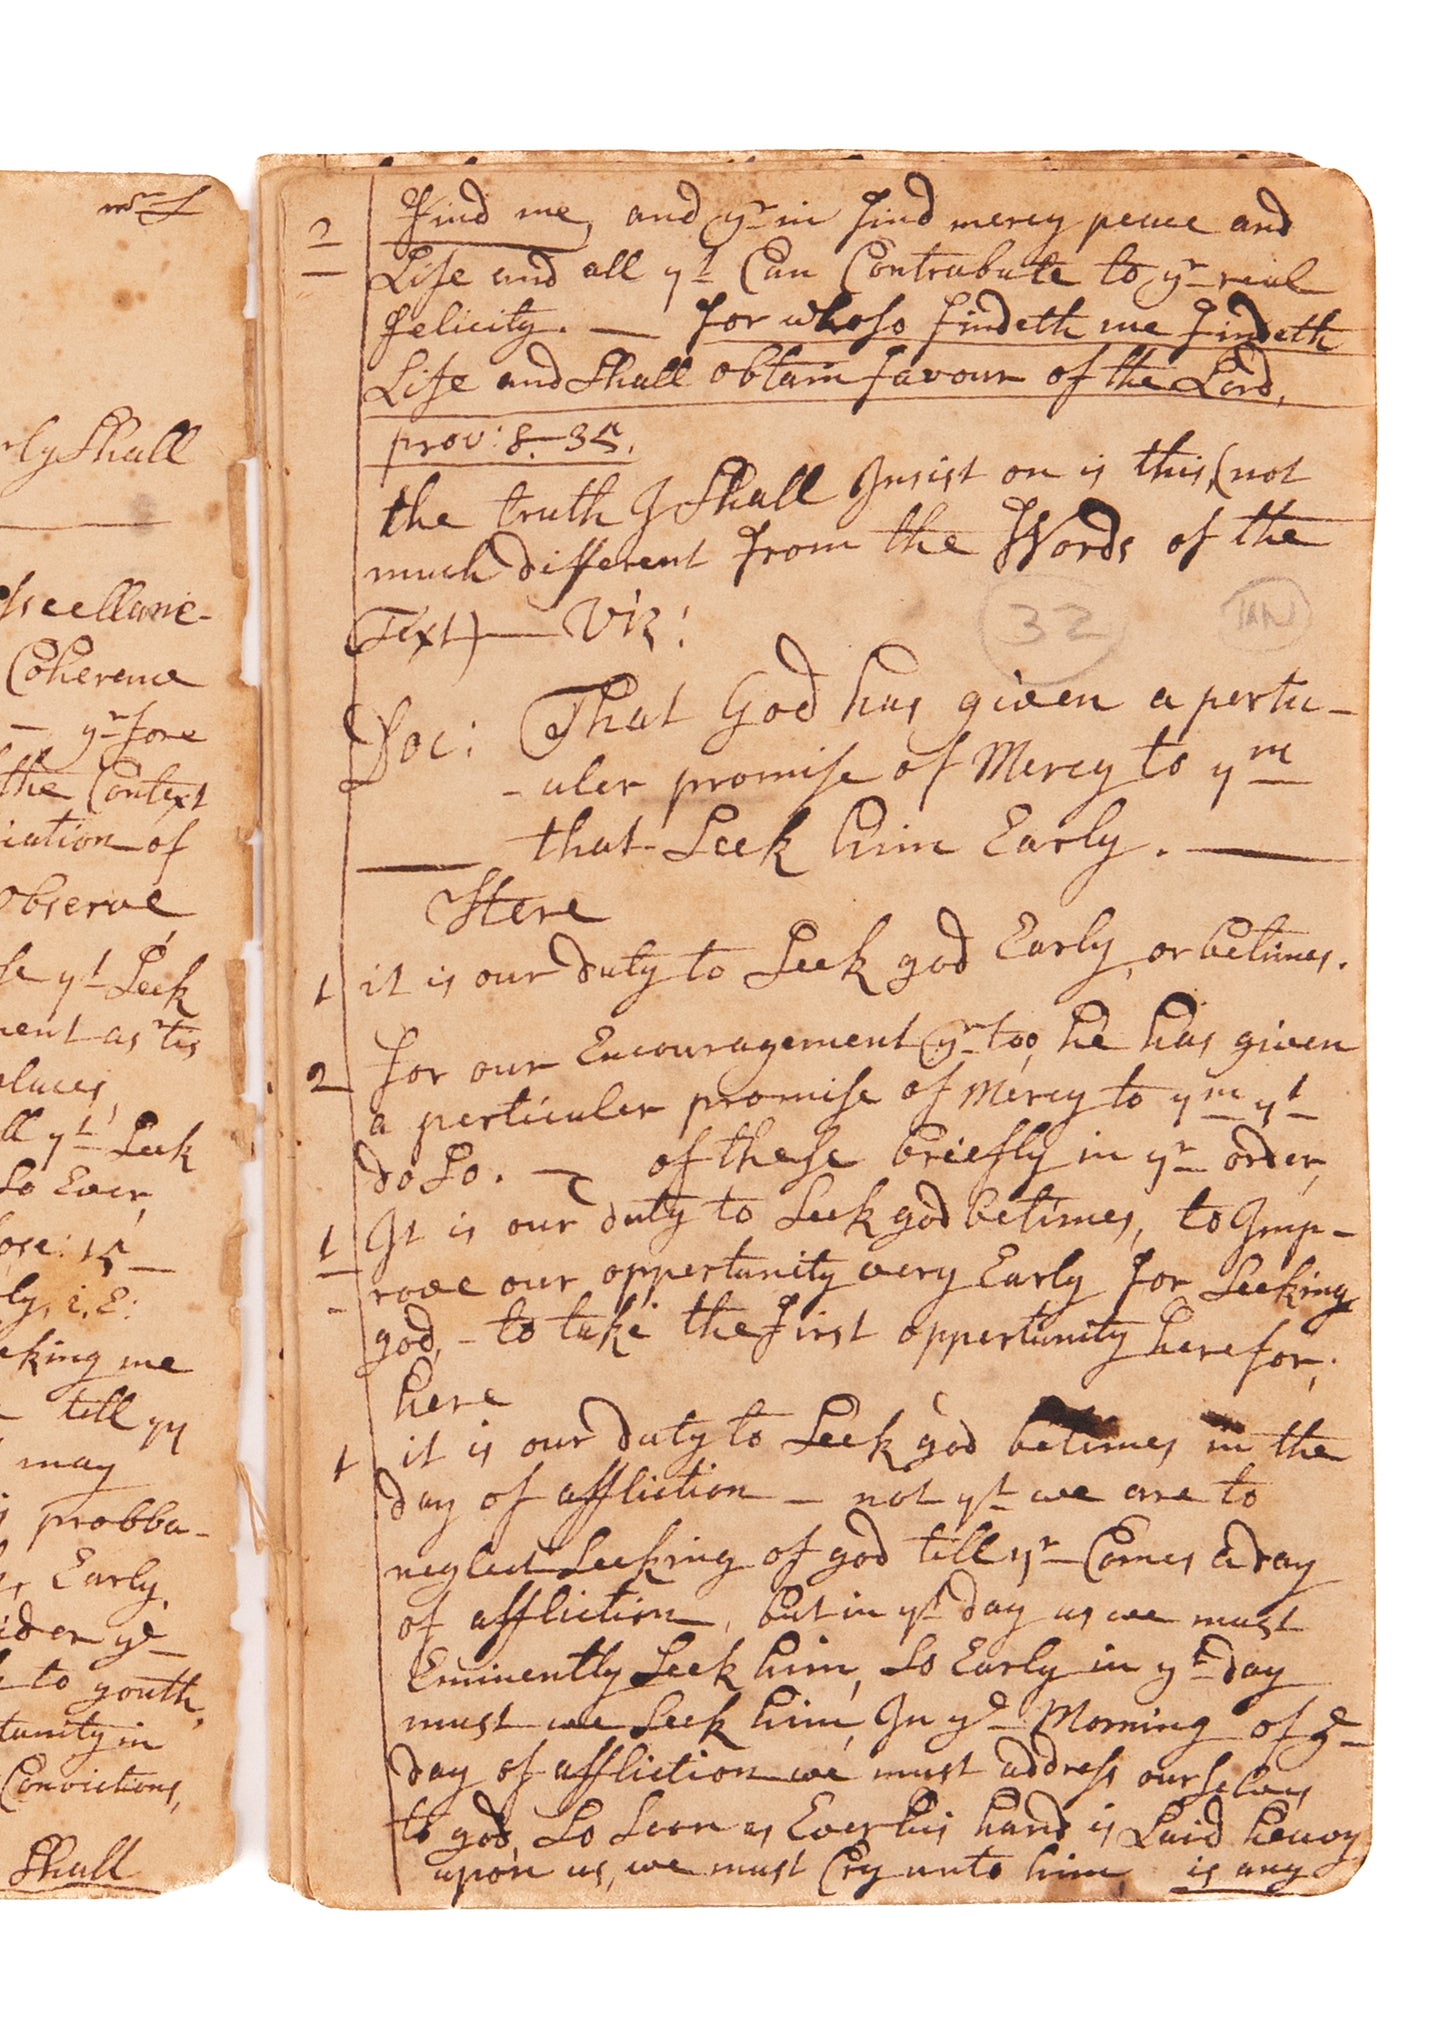 rly Shall
scellanie-
Coherence
— yr fore
the Context
iation of
observe
se yt Seek
ment as 'tis
places,
ll yt Seek
So Ever,
ose: 15 —
ly, i.E:
eking me
till yy
may
probba-
Early,
ider ye
to youth,
tunity in
Convictions,
Shall
2 Find me, and yr in find mercy peace and
Life and all yt Can Contrabute to yr real
felicity. — for whoso findeth me findeth
Life and Shall obtain favour of the Lord,
prov: 8-35.
the truth I Shall Insist on is this, (not
much different from the Words of the
Text) — Viz:
32
IAN
Doc: That God has given a pertic-
-uler promise of Mercy to ym
that Seek him Early. —
Here
1 it is our duty to Seek god Early, or betimes.
2 for our Encouragement yr too, he has given
a perticuler promise of Mercy to ym yt
do So. — of these briefly in yr order,
1 It is our duty to Seek god betimes, to Imp-
rove our oppertunity very Early for Seeking
god, - to take the first oppertunity herefor;
here
1 it is our duty to Seek god betimes in the
day of affliction — not yt we are to
neglect Seeking of god till yr Comes a day
of affliction, but in yt day as we must
Eminently Seek him, So Early in yt day
must we Seek him, In ye Morning of ye
day of affliction we must address ourselves
to god, So Soon as Ever his hand is Laid heavy
upon us, we must Cry unto him, is any